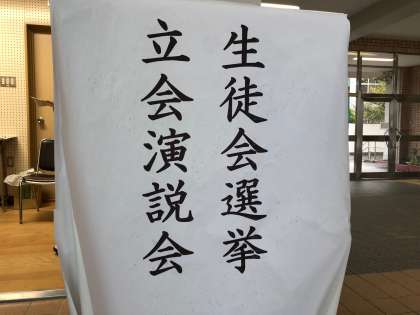 生徒会選挙
立会演説会